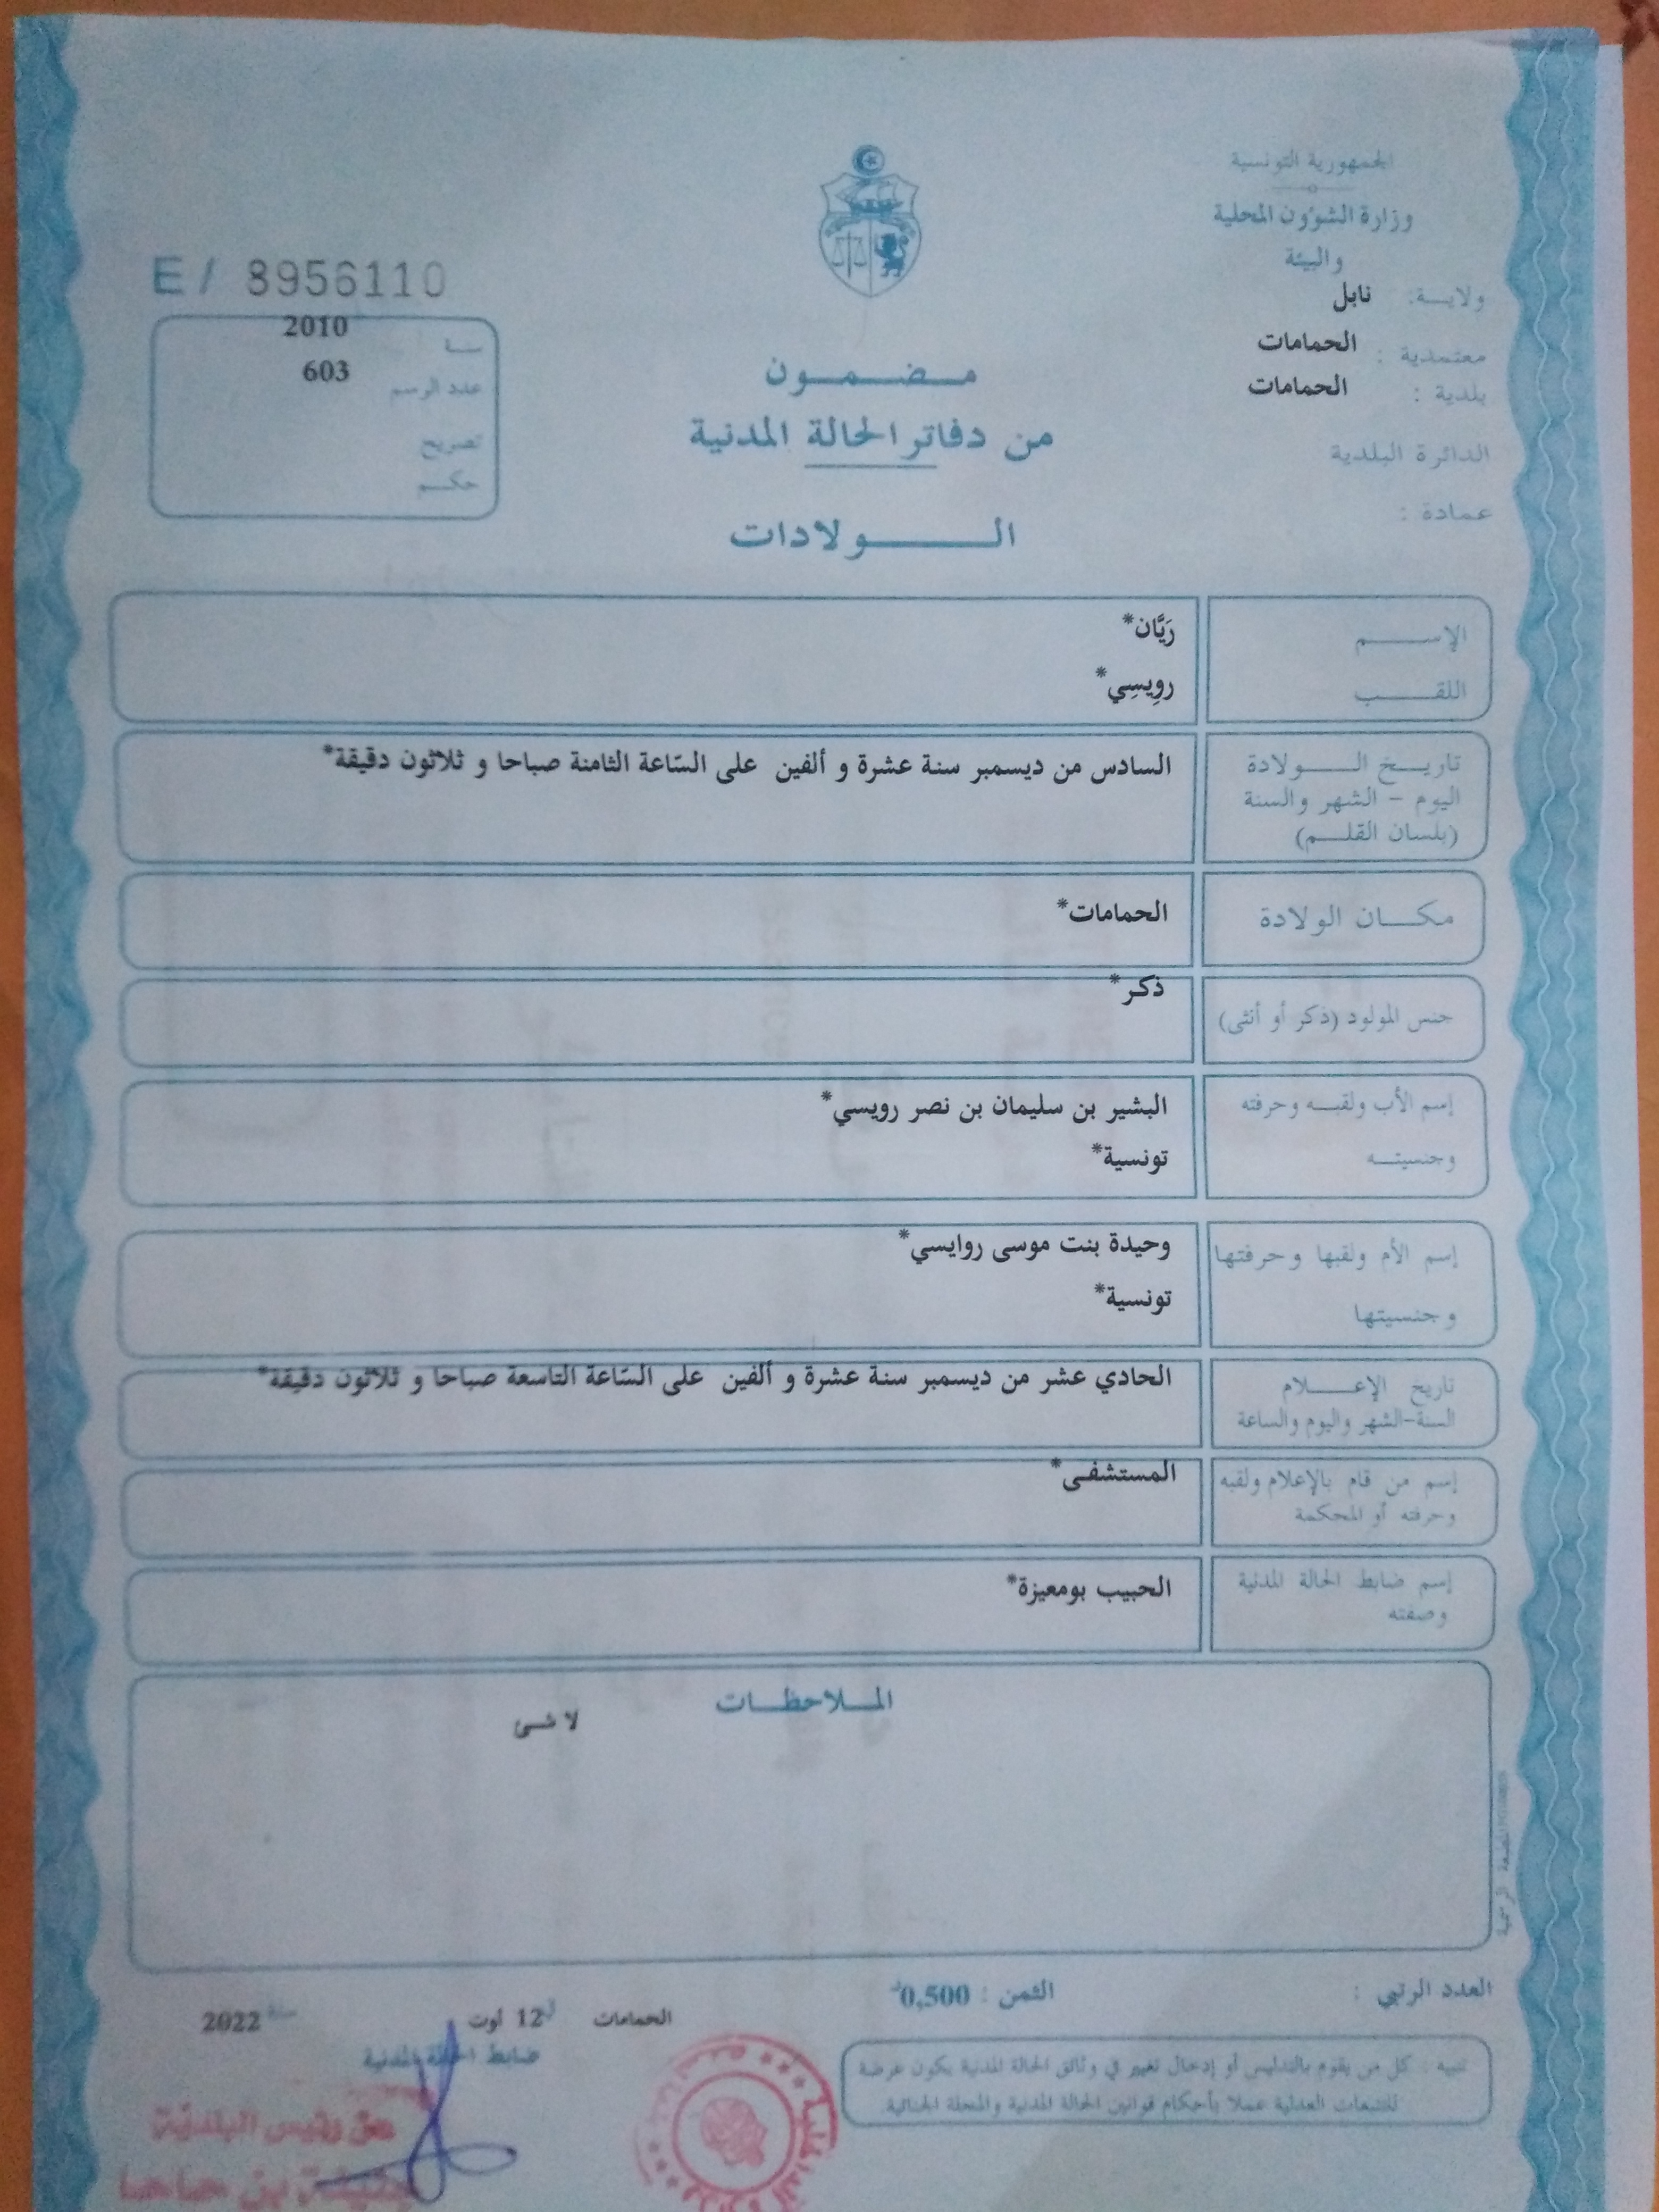 الجمهورية التونسية
وزارة الشؤون المحلية
والبيئة
ولايـــة: نابل
معتمدية : الحمامات
بلدية : الحمامات
الدائرة البلدية
عمادة :
E/ 8956110
سنة 2010
عدد الرسم 603
تصريح
حكم
مضمون
من دفاتر الحالة المدنية
الولادات
الإسم رَيَّان*
اللقب رويِسِي*
تاريخ الولادة السادس من ديسمبر سنة عشرة و ألفين على السّاعة الثامنة صباحا و ثلاثون دقيقة*
اليوم – الشهر والسنة
(بلسان القلم)
مكان الولادة الحمامات*
جنس المولود (ذكر أو أنثى) ذكر*
إسم الأب ولقبه وحرفته البشير بن سليمان بن نصر رويسي*
وجنسيته تونسية*
إسم الأم ولقبها وحرفتها وحيدة بنت موسى روايسي*
وجنسيتها تونسية*
تاريخ الإعلام الحادي عشر من ديسمبر سنة عشرة و ألفين على السّاعة التاسعة صباحا و ثلاثون دقيقة*
السنة-الشهر واليوم والساعة
إسم من قام بالإعلام ولقبه المستشفى*
وحرفته أو المحكمة
إسم ضابط الحالة المدنية الحبيب بومعيزة*
وصفته
الملاحظات
لا شئ
العدد الرتبي :
الثمن : 0,500د
الحمامات 12 أوت سنة 2022
ضابط الحالة المدنية
تنبيه : كل من يقوم بالتدليس أو إدخال تغيير في وثائق الحالة المدنية يكون عرضة
للتتبعات العدلية عملا بأحكام قوانين الحالة المدنية والمجلة الجنائية.
عن رئيس البلدية